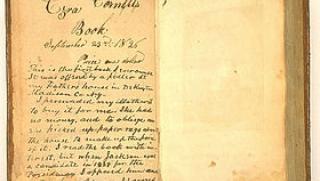 Ezra Cornell's
Book
September 23rd 1826
Price one dollar
This is the first book I ever owned
It was offered by a pedler at
my Fathers house in DeRuyter
Madison Co. N.y.
I persuaded my Mother
to buy it for me She had
no money, and to oblige me
she picked up paper rags about
the house to make up the price
of it. I read the book with in-
terest, but when Jackson was
a candidate in 1828 for the
Presidency I opposed him and